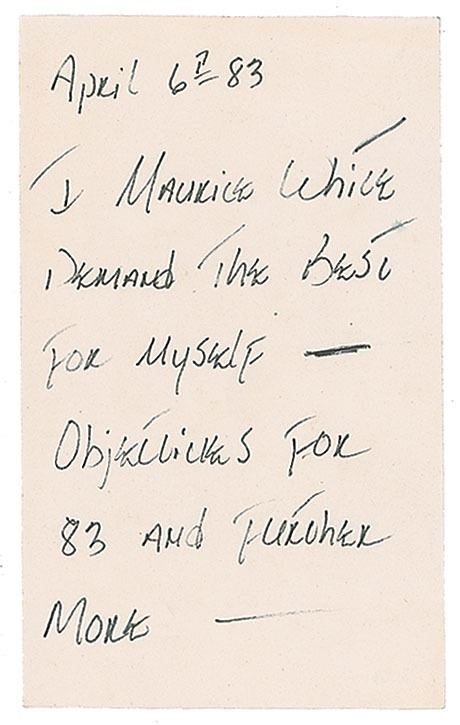 April 6th 83
I Maurice White
Demand The Best
For Myself —
Objectives For
83 and Further
More —